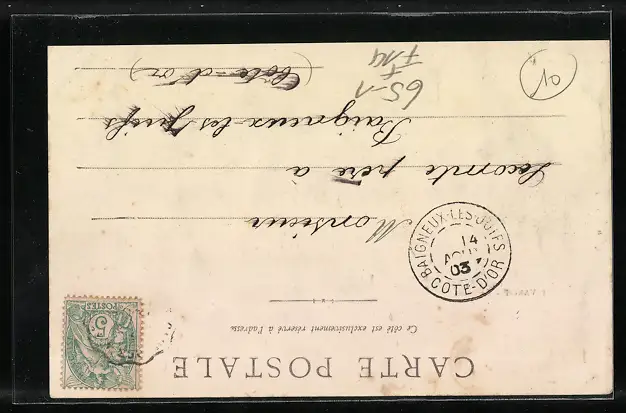 CARTE POSTALE
Ce côté est exclusivement réservé à l'adresse.
5
POSTES
BAIGNEUX-LES-JUIFS
14
AOUT
03
COTE-D'OR
Monsieur
Lecomte père à
Baigneux-les-Juifs
(Côte-d'or)
65-1
+
F14
10